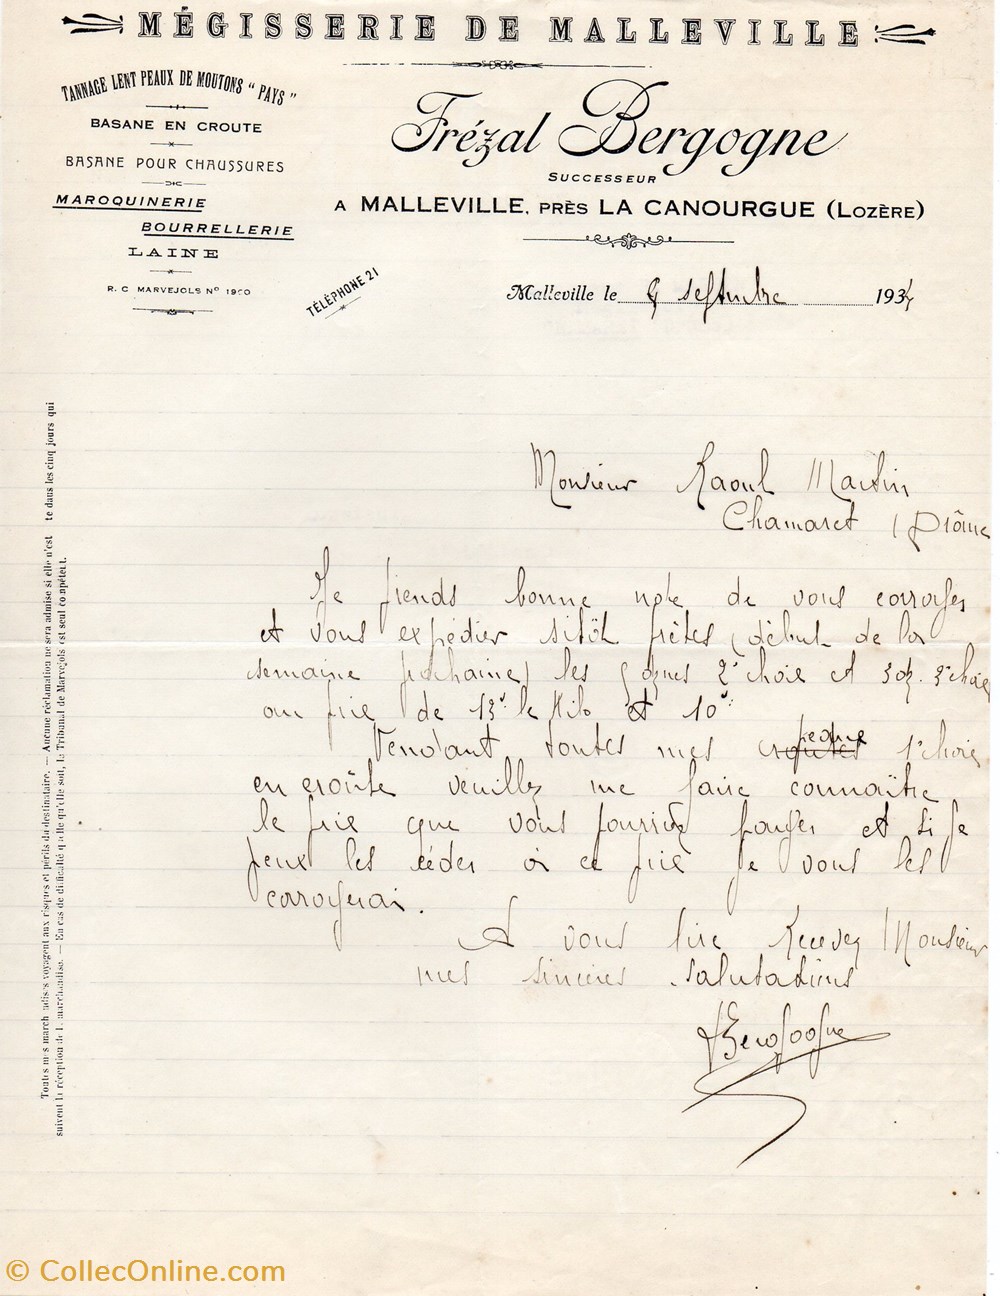 MÉGISSERIE DE MALLEVILLE
TANNAGE LENT PEAUX DE MOUTONS "PAYS"
BASANE EN CROUTE
BASANE POUR CHAUSSURES
MAROQUINERIE
BOURRELLERIE
LAINE
R. C MARVEJOLS No 1960
TÉLÉPHONE 21
Frézal Bergogne
SUCCESSEUR
A MALLEVILLE, PRÈS LA CANOURGUE (LOZÈRE)
Malleville le septembre 193
Monsieur Raoul Martin
Chamaret (Drôme
Je prends bonne note de vous corroyer
et vous expédier sitôt prêtes (début de la
semaine prochaine) les 2e choix et 3e choix
au prix de 13f le Kilo et 10f.
Vendant toutes mes croutes peaux 1e choix
en croûte veuillez me faire connaître
le prix que vous pourriez payer et si je
peux les céder à ce prix je vous les
corroyerai.
A vous lire Recevez Monsieur
mes sincères salutations
FBergogne
Toutes mes marchandises voyagent aux risques et périls du destinataire. — Aucune réclamation ne sera admise si elle n'est te dans les cinq jours qui
suivent la réception de la marchandise. — En cas de difficulté quelle qu'elle soit, le Tribunal de Marvejols est seul compétent.
© CollecOnline.com